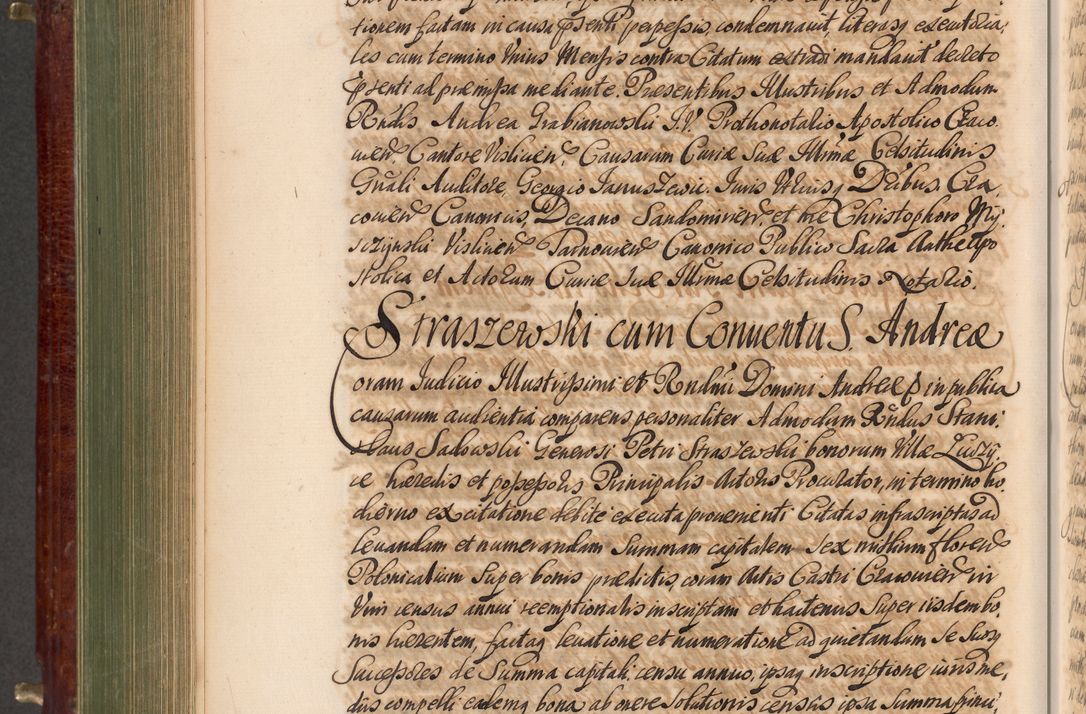 tionem factam in causa pñti perpessis, condemnauit, literasq executoria,
les cum termino vnius Mensis contra Citatum extradi mandauit decreto
pñti ad præmissa mediante. Præsentibus Illustribus et Admodum
Rñdis Andrea Grabianowski I. V. Prothonotario Apostolico Craco.
uien. Cantore Visliuien. Causarum Curiæ Suæ Illmæ Celsitudinis
Gnãli Auditore, Georgio Januszewic. Juris Vtriusq Dribus. Cra,
couien Canonicis, Decano Sandomirien et me Christophoro Mij
szzynski Vislicien Tarnouien Canonico Publico Sacra Authte Apo
stolica et Actorum Curiæ Suæ Illmæ Celsitudinis Notario.
Straszewski cum Conuentu S. Andreæ
oram Judicio Illustrissimi et Rndmi Domini Andreæ &c in publica
causarum audientia comparens personaliter Admodum Rñdus Stani
slaus Sadowski Generosi Petri Straszewski bonorum Villæ Ludzy,
ce hæredis et possessoris Principalis Actoris Procurator, in termino ho,
dierno ex citatione debite executa prouenienti Citatas infrascriptas ad
leuandam et numerandam Summam capitalem sex millium floren
Polonicalium super bonis prædictis, coram Actis Castri Cracouien in
vim census annui reemptionalis inscriptam et hactenus super iisdem bo,
nis hærentem, factaq leuatione et numeratione ad quietandum se suosq
Successores de Summa capitali, censu annuo, ipsaq inscriptione iuris me,
diis compelli eademq bona ab onere solutionis census ipsa Summa princi,